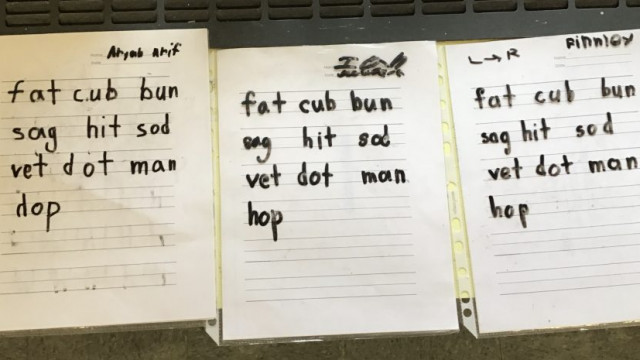 Aryab Arif
fat cub bun
sag hit sod
vet dot man
dop
fat cub bun
sag hit sod
vet dot man
hop
L→R Finnley
fat cub bun
sag hit sod
vet dot man
hop